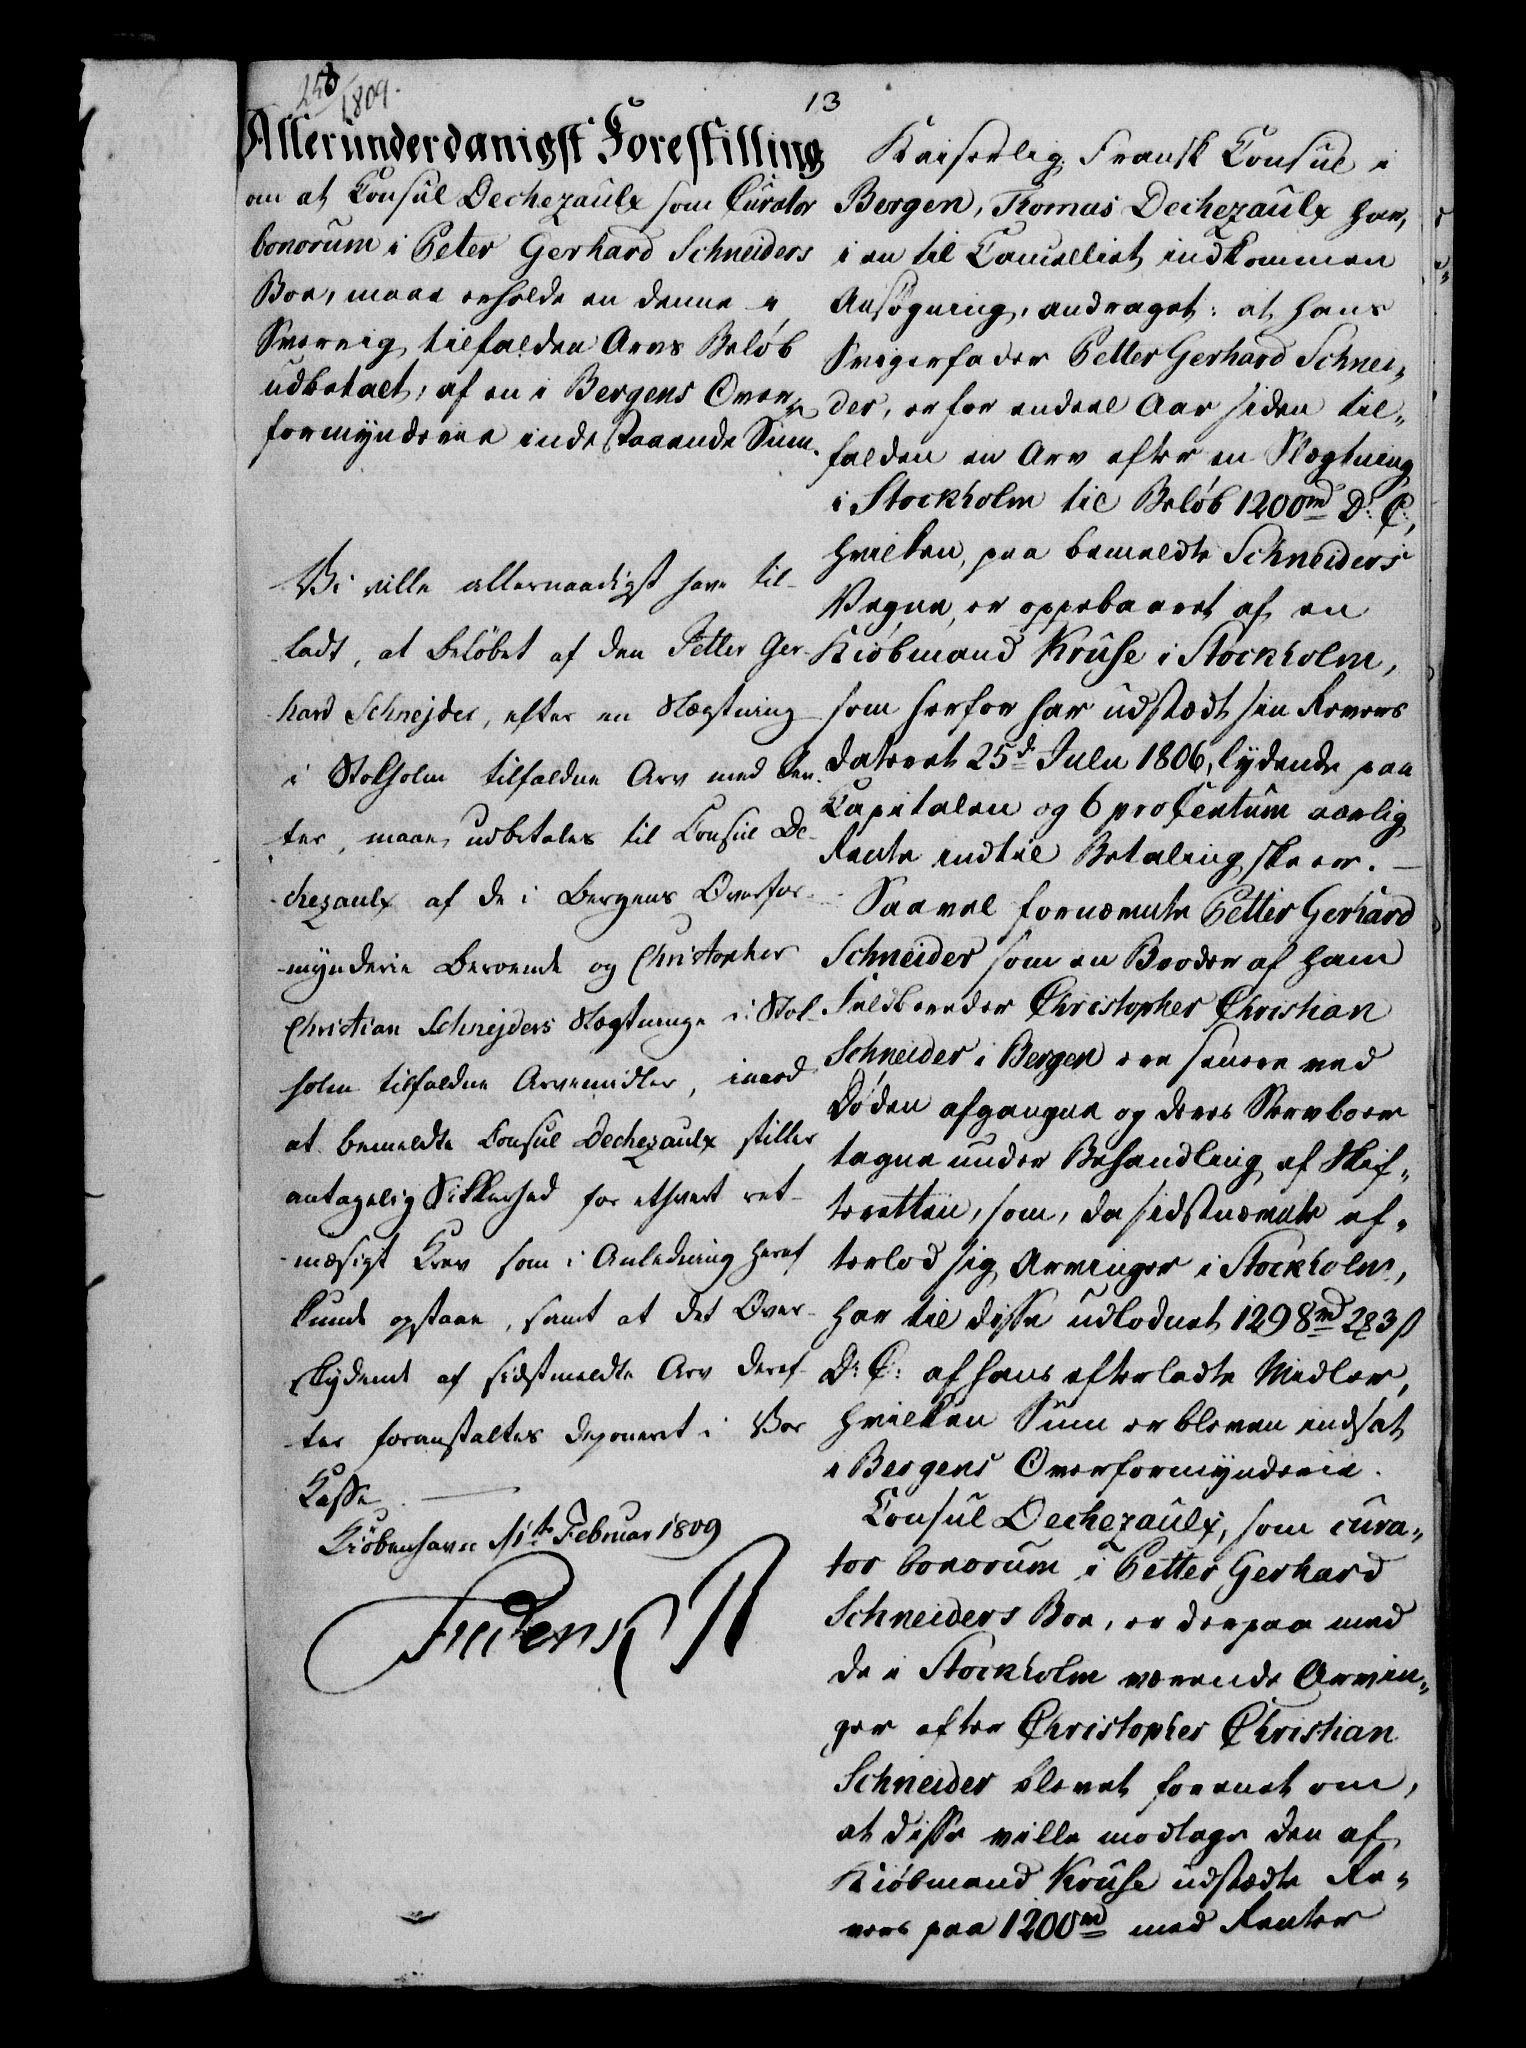 258/1809.
13
Allerunderdanigst Forestilling
om at Consul Dechezaulx som Curator
bonorum i Peter Gerhard Schneiders
Boe, maae erholde en denne i
Sverrig tilfalden Arvs Beløb
udbetalt, af en i Bergens Over¬
formynderie indestaaende Sum.
Vi ville allernaadigst have til¬
ladt, at Beløbet af den Petter Ger¬
hard Schnejder, efter en Slægtning
i Stokholm tilfaldne Arv med Ren¬
ter, maae udbetales til Consul De¬
chezaulx af de i Bergens Overfor¬
mynderie beroende og Christopher
Christian Schnejders Slægtninge i Stok¬
holm tilfaldne Arvemidler, imod
at bemeldte Consul Dechezaulx stiller
antagelig Sikkerhed for ethvert ret¬
mæsigt Krav som i Anledning heraf
kunde opstaae, samt at det Over¬
skydende af sidstmeldte Arv deref¬
ter foranstaltes deponeret i Vor
Kasse.
Kiøbenhavn d 1te Februar 1809
Frederik R
Kaiserlig Fransk Consul i
Bergen, Thomas Dechezaulx har,
i en til Cancelliet indkommen
Ansøgning, andraget: at hans
Svigerfader Petter Gerhard Schnei¬
der, er for endeel Aar siden til¬
falden en Arv efter en Slægtning
i Stockholm til Beløb 1200rd D: C:,
hvilken, paa bemeldte Schneiders
Vegne, er oppebaaret af en
Kiøbmand Kruse i Stockholm,
som herfor har udstædt sin Revers
dateret 25d Julii 1806, lydende paa
Capitalen og 6 pro Centum aarlig
Rente indtil Betaling skeer.
Saavel fornævnte Petter Gerhard
Schneider som en Broder af ham
Feldbereder Christopher Christian
Schneider i Bergen ere senere ved
Døden afgangne og deres Stervboer
tagne under Behandling af Skif¬
teretten, som, da sidstnævnte ef¬
terlod sig Arvinger i Stockholm,
har til disse udlodnet 1298rd 2 3 ß
D: C: af hans efterladte Midler,
hvilken Sum er bleven indsat
i Bergens Overformynderie.
Consul Dechezaulx, som cura¬
tor bonorum i Petter Gerhard
Schneiders Boe, er derpaa med
de i Stockholm værende Arvin¬
ger efter Christopher Christian
Schneider blevet forenet om,
at disse ville modtage den af
Kiøbmand Kruse udstædte Re¬
vers paa 1200rd med Renter